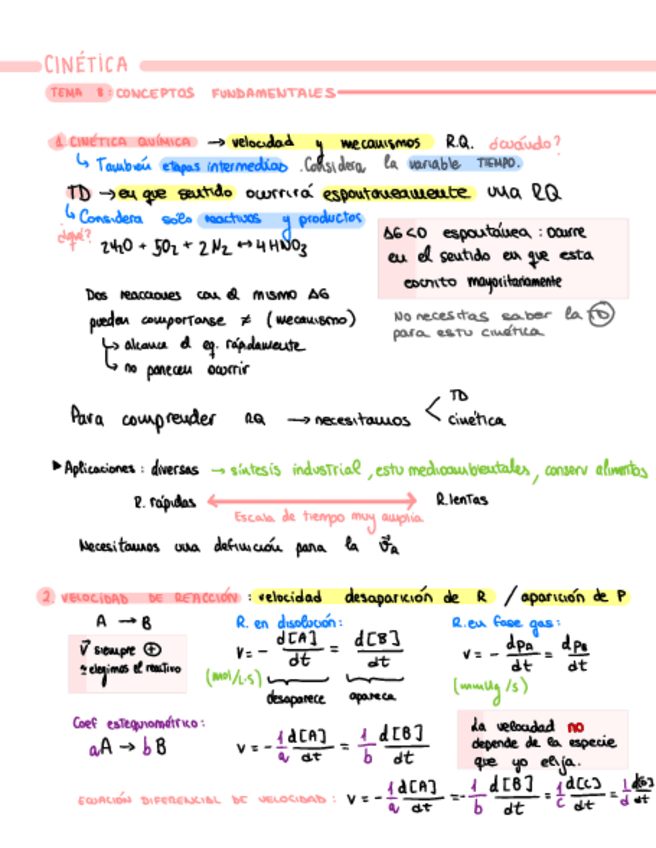 CINÉTICA
TEMA 8: CONCEPTOS FUNDAMENTALES
1. CINÉTICA QUÍMICA → velocidad y mecanismos R.Q. ¿cuándo?
↳ También etapas intermedias. Considera la variable TIEMPO.
TD → en que sentido ocurrirá espontaneamente una RQ
↳ Considera solo reactivos y productos
¿qué?
2H₂O + 5O₂ + 2N₂ ↔ 4HNO₃
ΔG<0 espontánea: ocurre
en el sentido en que esta
escrito mayoritariamente
Dos reacciones con el mismo ΔG
pueden comportarse ≠ (mecanismo)
↳ alcance el eq. rápidamente
↳ no parecen ocurrir
No necesitas saber la TD
para estu cinética
Para comprender RQ → necesitamos < TD
cinética
▸Aplicaciones: diversas → síntesis industrial, estu medioambientales, conserv alimentos
R. rápidas ↔ R. lentas
Escala de tiempo muy amplia
Necesitamos una definición para la v̄R
2. VELOCIDAD DE REACCIÓN: velocidad desaparición de R / aparición de P
A → B
V siempre ⊕
elegimos el reactivo
R. en disolución:
V = - d[A]/dt = d[B]/dt
(mol/L·s)
desaparece aparece
R. en fase gas:
V = - dpA/dt = dpB/dt
(mmHg/s)
Coef estequiométrico:
aA → bB
V = - 1/a d[A]/dt = 1/b d[B]/dt
La velocidad no
depende de la especie
que yo elija.
ECUACIÓN DIFERENCIAL DE VELOCIDAD: V = - 1/a d[A]/dt = - 1/b d[B]/dt = 1/c d[C]/dt = 1/d d[D]/dt